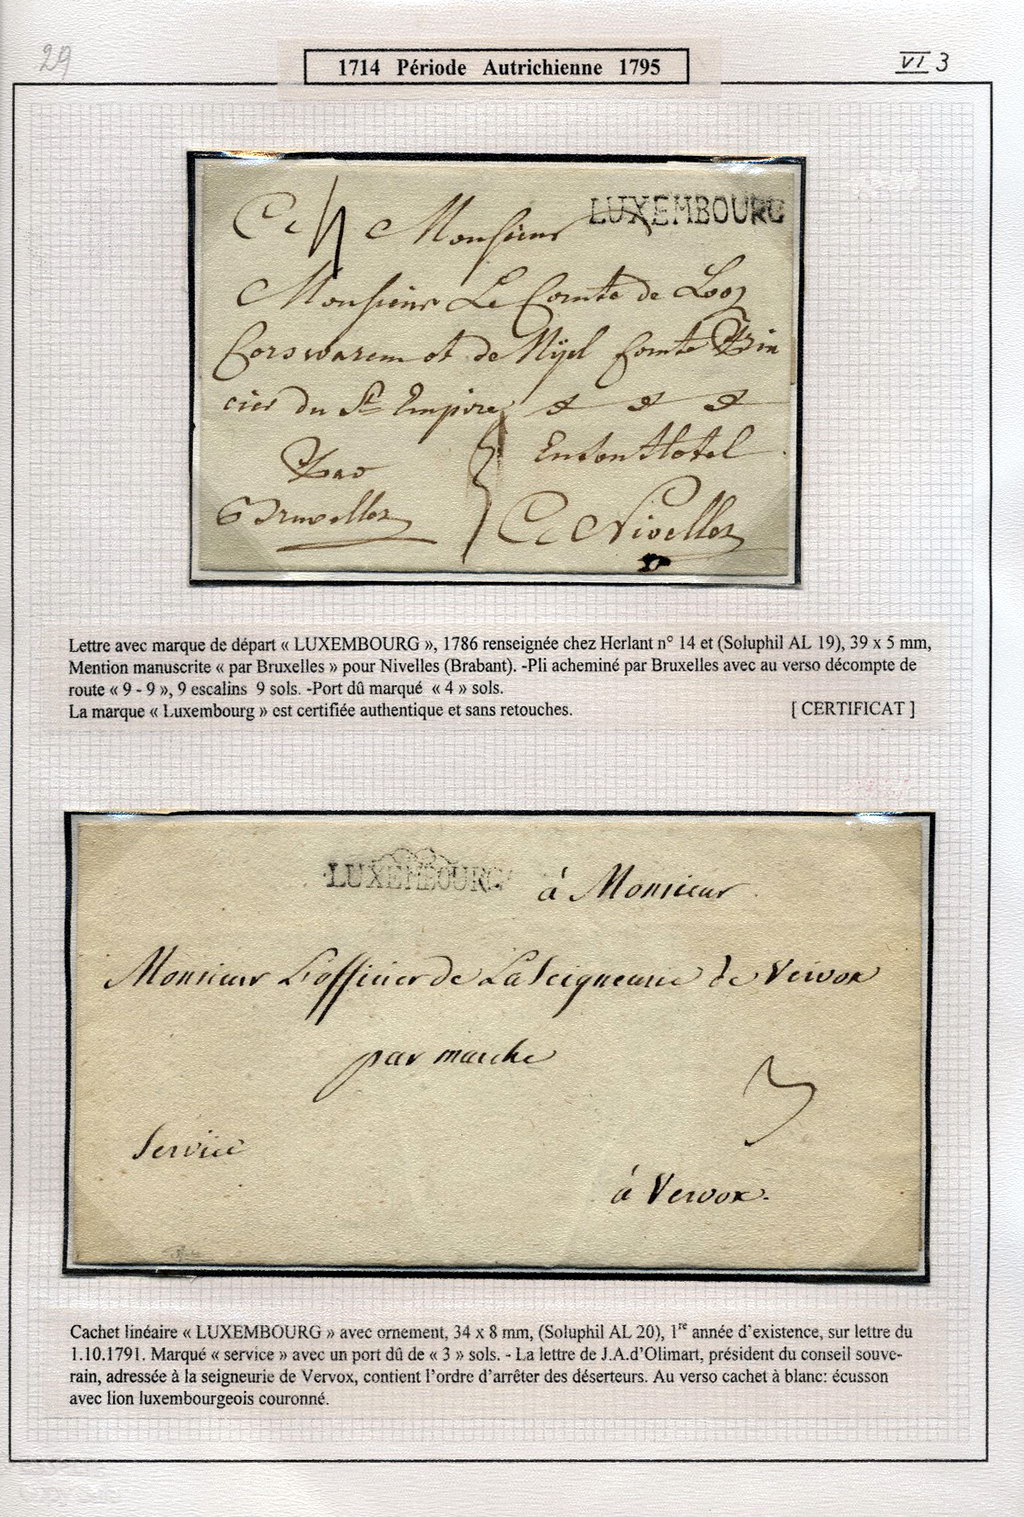 29
1714 Période Autrichienne 1795
VI 3
LUXEMBOURG
A Monsieur
Monsieur Le Comte de Looz
Corswarem et de Nÿel Comte Prin
cier du St Empire & & &
Par
Bruxelles
En Son Hotel
A Nivelles
Lettre avec marque de départ « LUXEMBOURG », 1786 renseignée chez Herlant n° 14 et (Soluphil AL 19), 39 x 5 mm,
Mention manuscrite « par Bruxelles » pour Nivelles (Brabant). -Pli acheminé par Bruxelles avec au verso décompte de
route « 9 - 9 », 9 escalins 9 sols. -Port dû marqué « 4 » sols.
La marque « Luxembourg » est certifiée authentique et sans retouches. [ CERTIFICAT ]
LUXEMBOURG
à Monsieur
Monsieur L'officier de La Seigneurie de Vervox
par marche
3
Service
à Vervox.
Cachet linéaire « LUXEMBOURG » avec ornement, 34 x 8 mm, (Soluphil AL 20), 1re année d'existence, sur lettre du
1.10.1791. Marqué « service » avec un port dû de « 3 » sols. - La lettre de J.A.d'Olimart, président du conseil souve-
rain, adressée à la seigneurie de Vervox, contient l'ordre d'arrêter des déserteurs. Au verso cachet à blanc: écusson
avec lion luxembourgeois couronné.